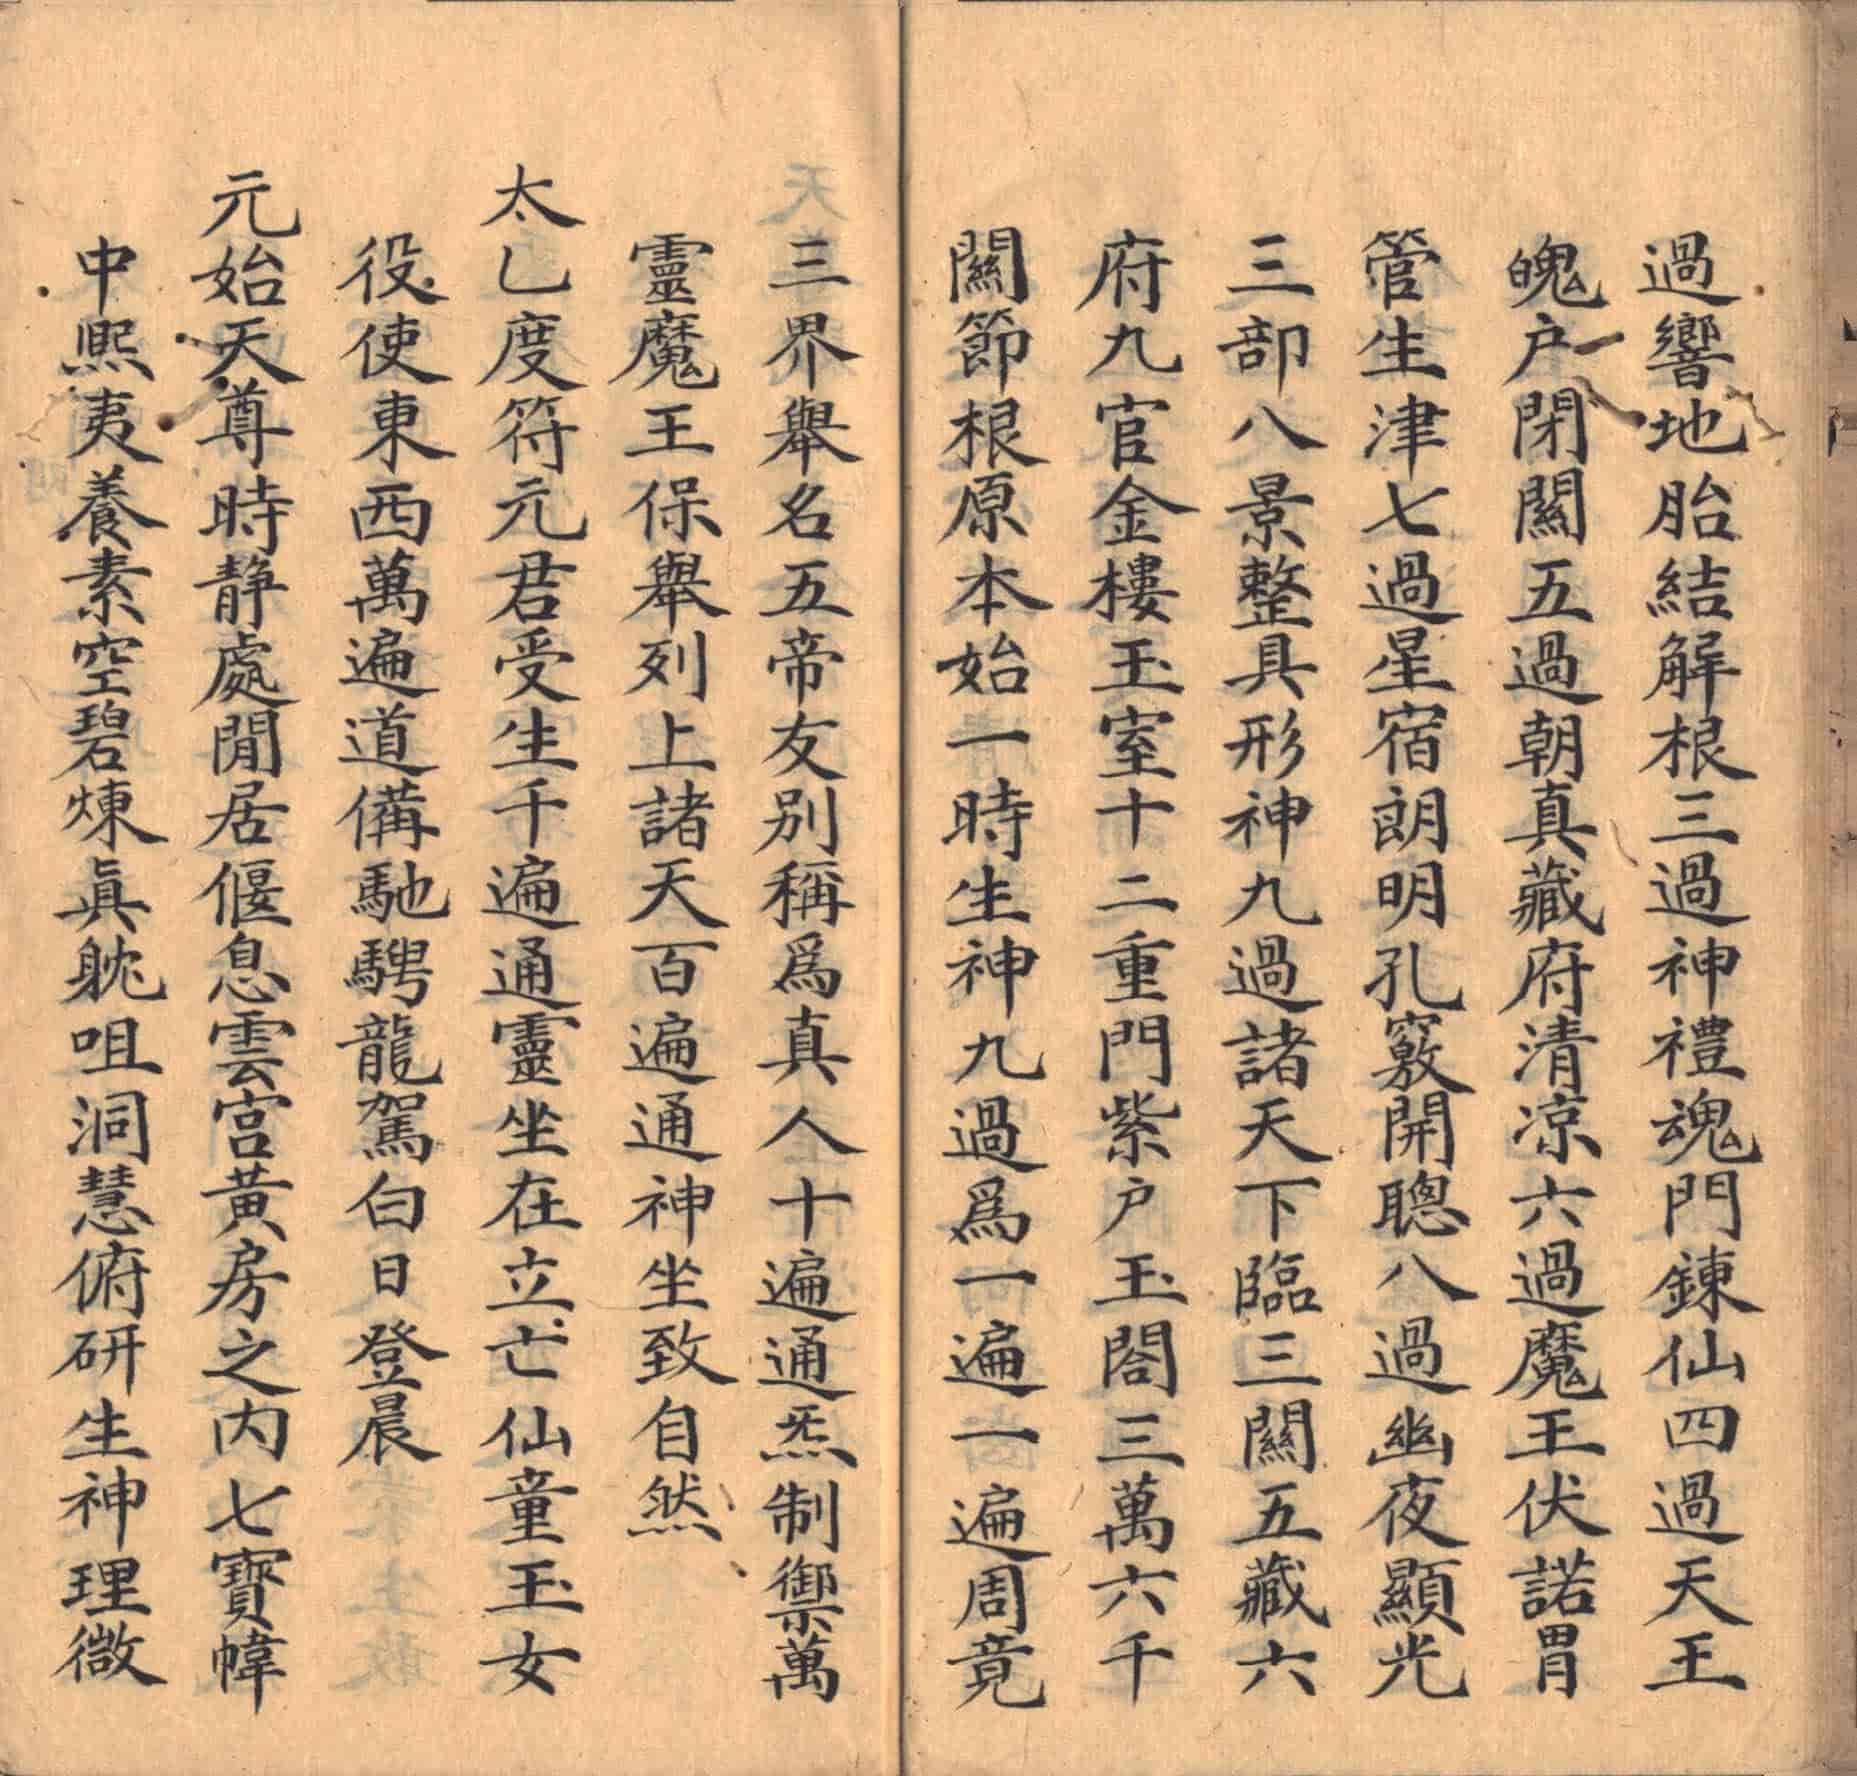 過響地胎結解根三過神禮魂門鍊仙四過天王
魄户閉關五過朝真藏府清凉六過魔王伏諾胃
管生津七過星宿朗明孔竅開聰八過幽夜顯光
三部八景整具形神九過諸天下臨三關五藏六
府九官金樓玉室十二重門紫户玉閣三萬六千
關節根原本始一時生神九過爲一遍一遍周竟
三界舉名五帝友别稱爲真人十遍通炁制禦萬
靈魔王保舉列上諸天百遍通神坐致自然
太乚度符元君受生千遍通靈坐在立亡仙童玉女
役使東西萬遍道備馳騁龍駕白日登晨
元始天尊時静處閒居偃息雲宫黄房之内七寶幃
中熙夷養素空碧煉眞躭咀洞慧俯研生神理微